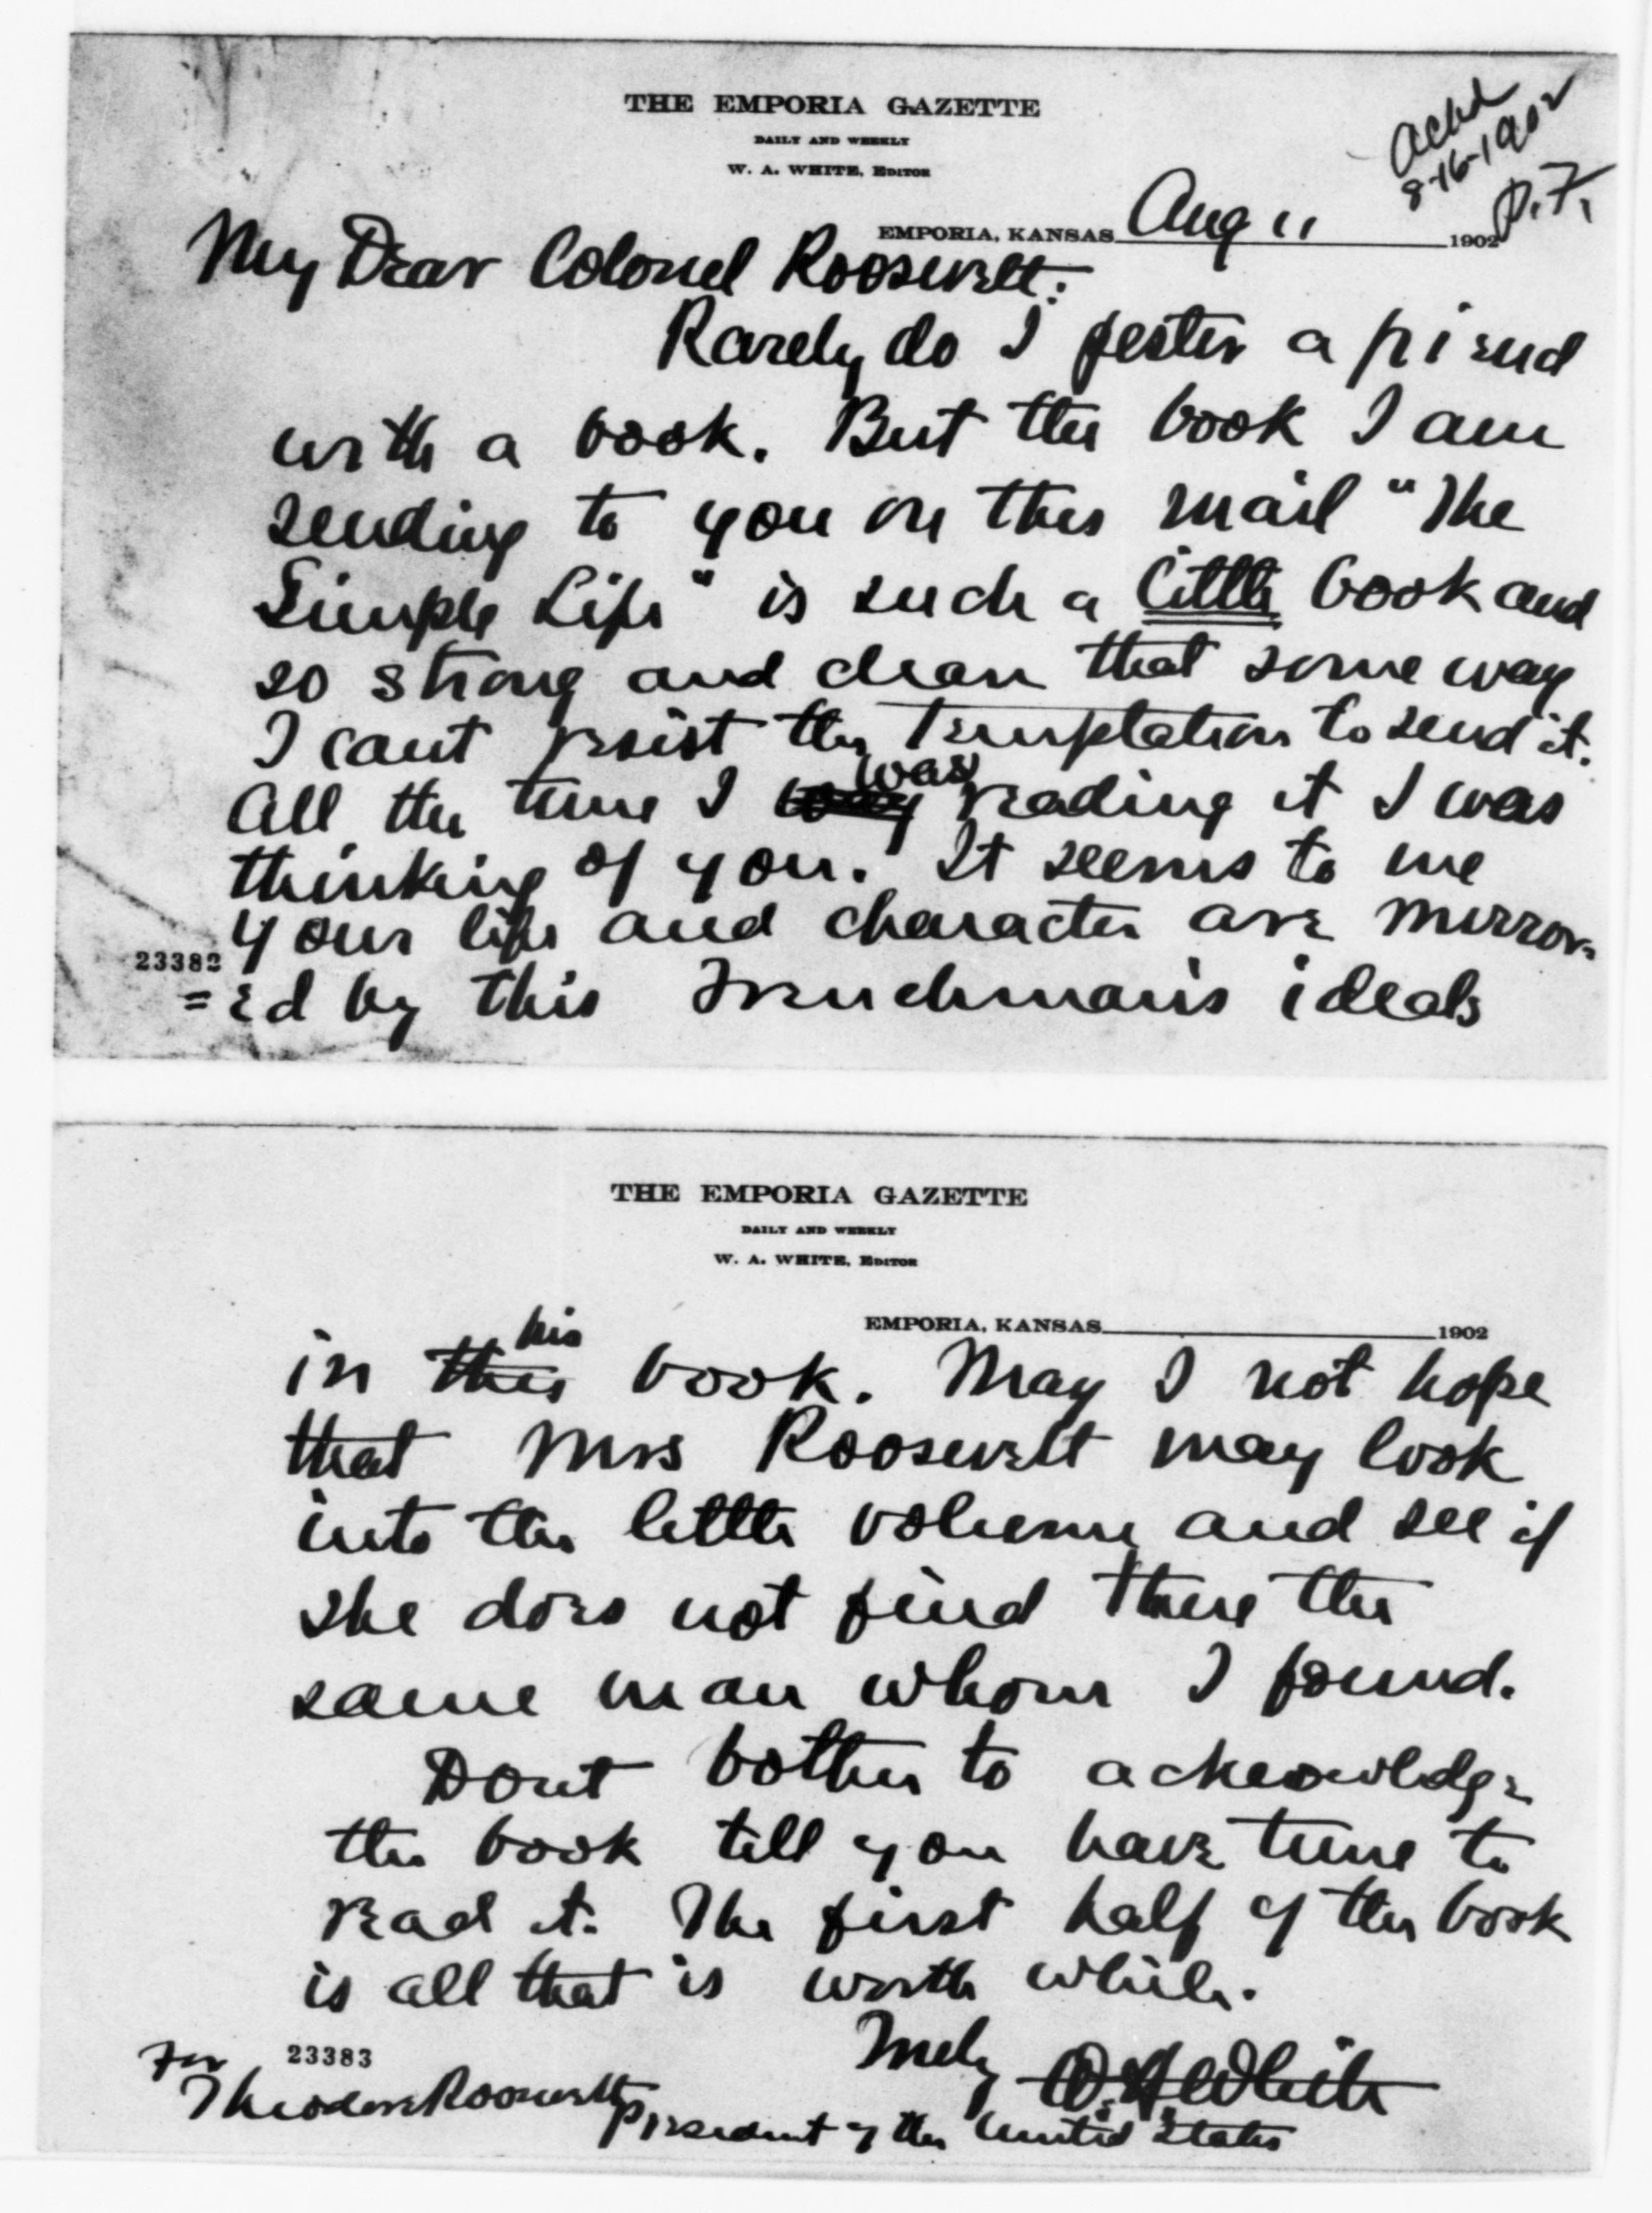 THE EMPORIA GAZETTE
DAILY AND WEEKLY
W. A. WHITE, EDITOR
Ackd
8-16-1902
P.F.
EMPORIA, KANSAS Aug 11 1902
My Dear Colonel Roosevelt:
Rarely do I pester a friend
with a book. But the book I am
sending to you on this mail "The
Simple Life" is such a little book and
so strong and clean that some way
I cant resist the temptation to send it.
was
All the time I reading it I was
thinking of you. It seems to me
your life and character are mirror-
23382
=ed by this Frenchman's ideals
THE EMPORIA GAZETTE
DAILY AND WEEKLY
W. A. WHITE, EDITOR
EMPORIA, KANSAS 1902
his
in this book. May I not hope
that Mrs Roosevelt may look
into the little volume and see if
she does not find there the
same man whom I found.
Dont bother to acknowledge
the book till you have time to
read it. The first half of the book
is all that is worth while.
Truly W. A. White
23383
For
Theodore Roosevelt
President of the United States